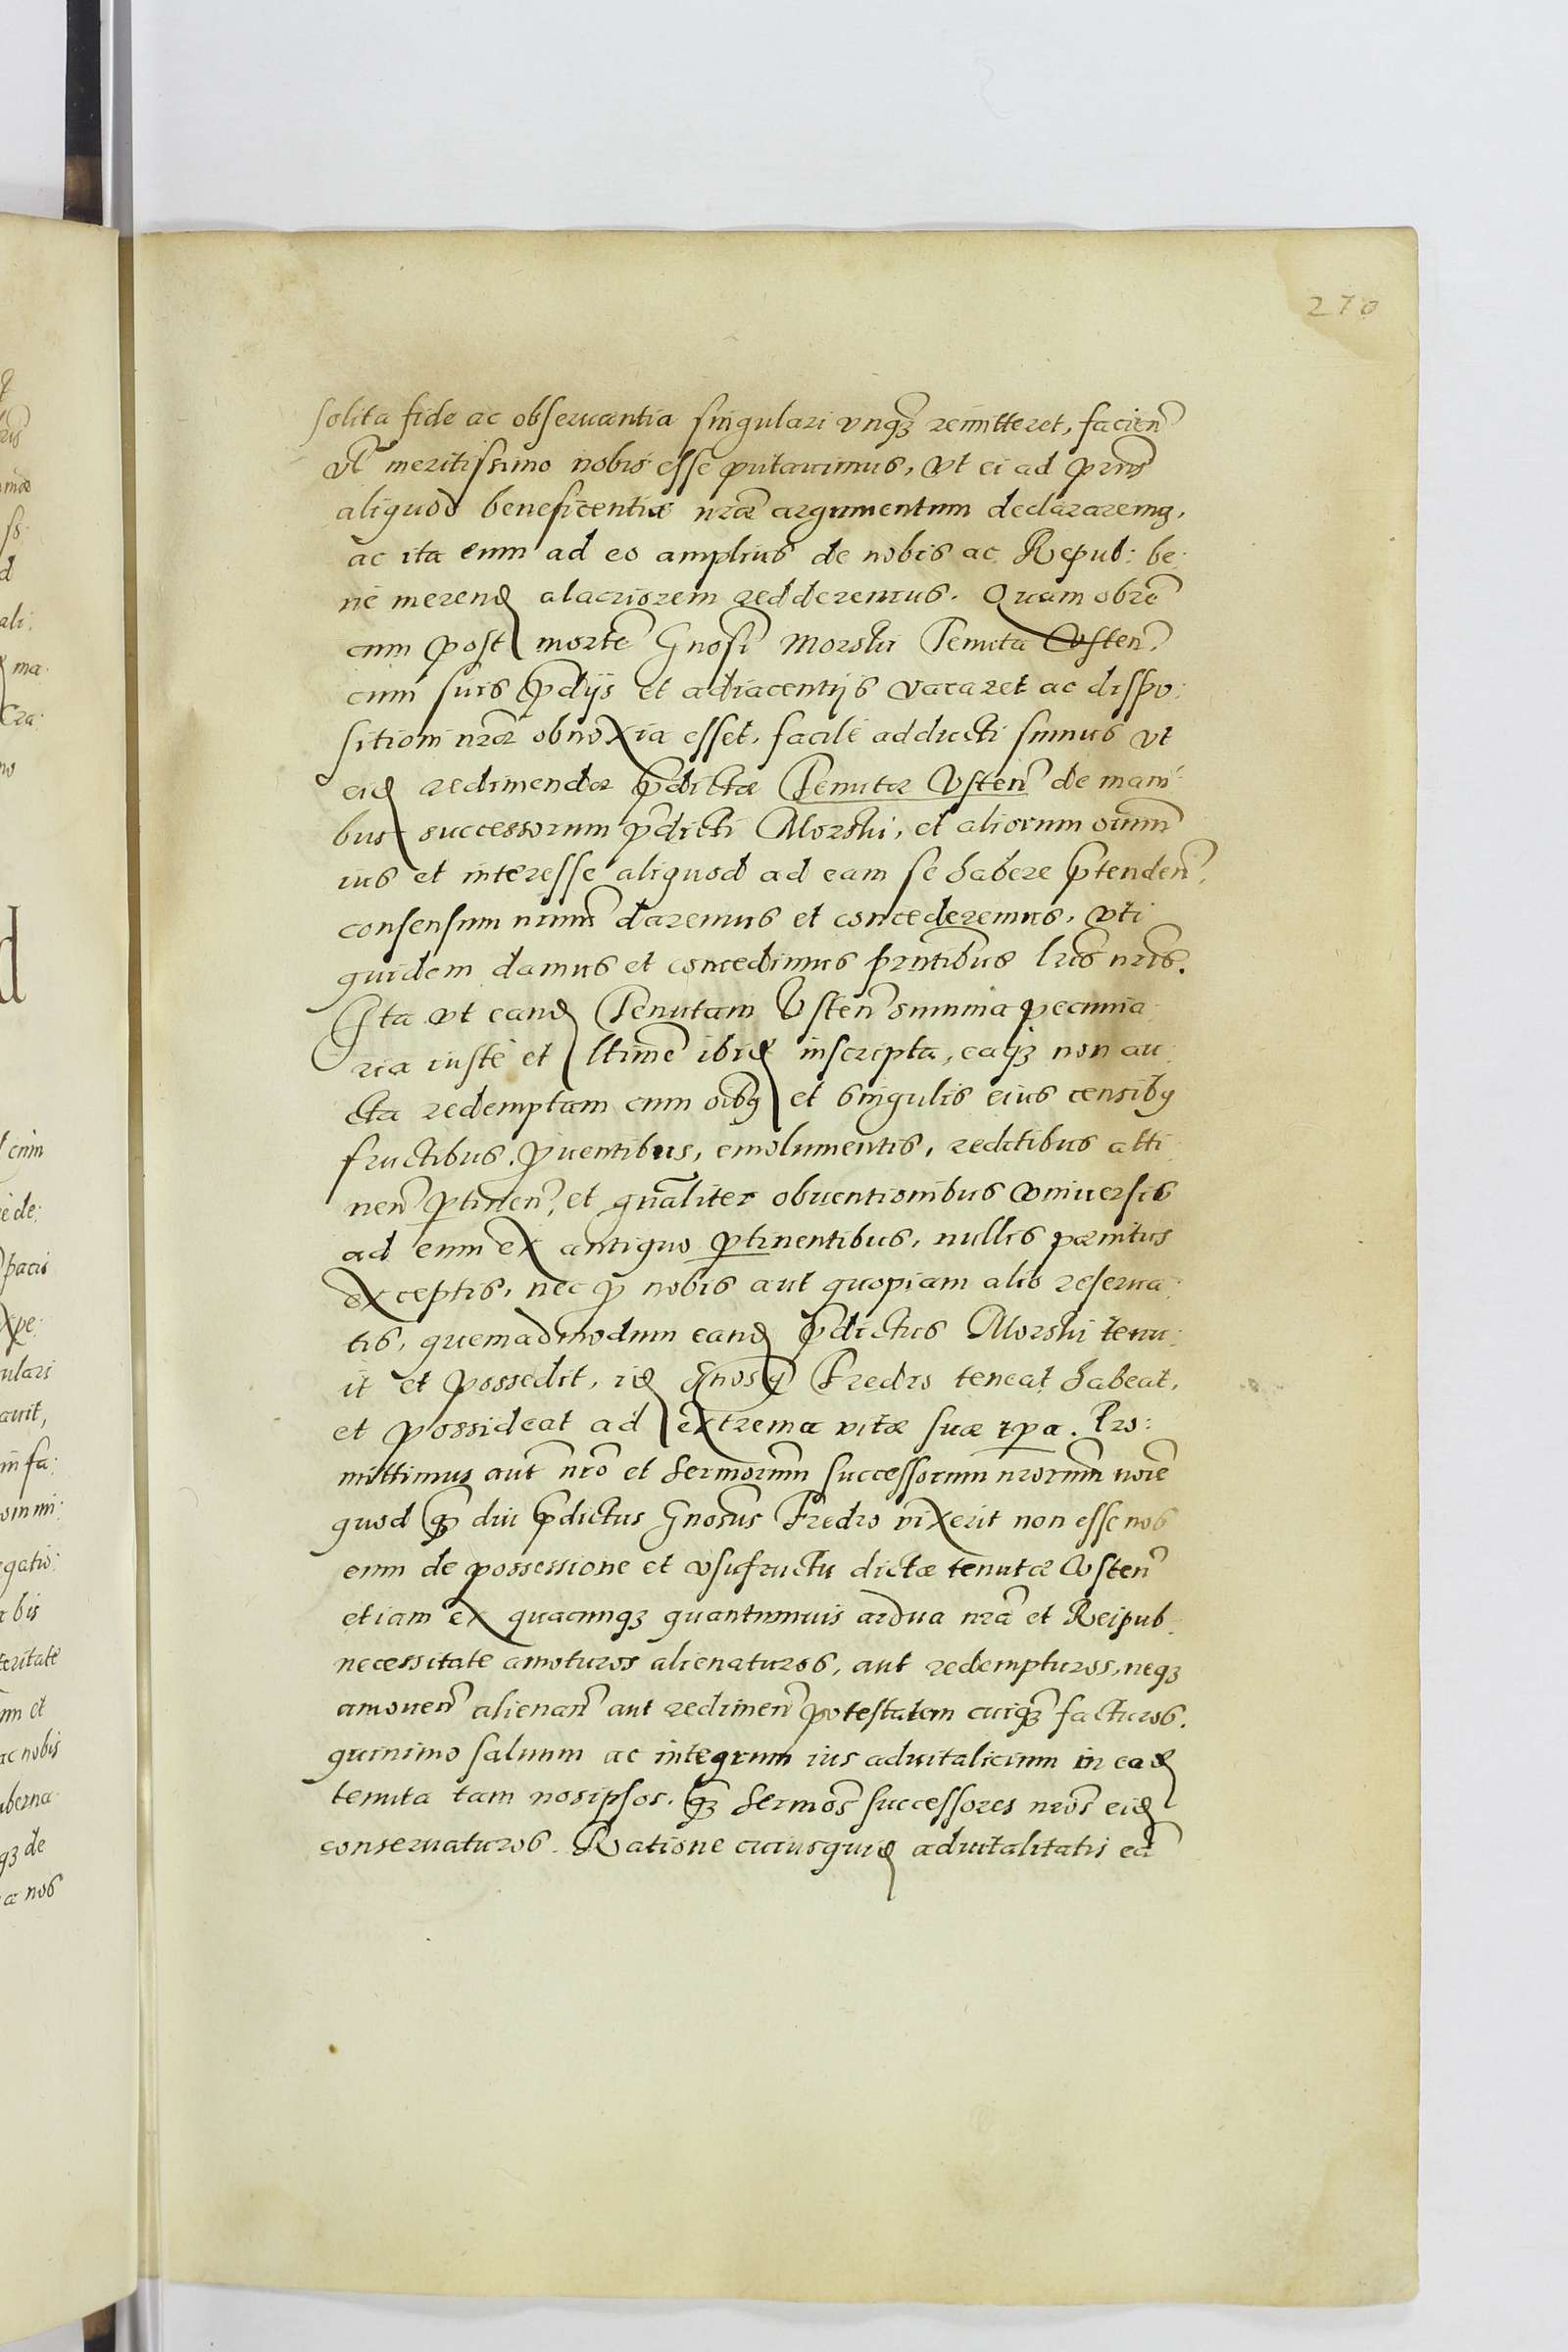 270
solita fide ac obseruantia singulari vnqȝ remitteret, facien̄
vl̄ meritissimo nobis esse putauimus, vt ei ad pn̄s
aliquod beneficentiæ nr̄æ argumentum declararemꝰ,
ac ita eum ad eo amplius de nobis ac Repub: be:
ne merend alacriorem redderemus. Quam obrē
cum post mortē Gnosi Morski Tenuta Vsten̄
cum suis p̄dijs et adiacentijs vacaret ac dispo:
sitioni nr̄æ obnoxia esset, facilè adducti sumus vt
eid redimendæ p̄dictæ Tenutæ Vsten̄ de mani:
bus successorum p̄dicti Morski, et aliorum oium̄
ius et interesse aliquod ad eam se habere p̄tenden̄,
consensum nrum̄ daremus et concederemus, vti
quidem damus et concedimus pn̄tibus lr̄is nr̄is.
Ita vt eand Tenutam Vsten̄ summa pecunia:
ria iustè et ltimē ibid inscripta, eaqȝ non au:
cta redemptam cum oibꝰ et singulis eius censibꝰ
fructibus, ꝓuentibus, emolumentis, reditibus atti:
nen̄ ꝑtinen̄, et gn̄aliter obuentionibus vniuersis
ad eum ex antiquo ꝑtinentibus, nullis pænitus
exceptis, nec ꝓ nobis aut quopiam alio reserua:
tis, quemadmodum eand p̄dictus Morski tenu:
it et possedit, id Gnosꝰ Fredro teneat, habeat,
et possideat ad extrema vitæ suæ tp̄a. Pro:
mittimus aut̄ nr̄o et Sermorum̄ successorum nrorum̄ noīe
quod qȝ̄ diu p̄dictus Gnosus̄ Fredro vixerit non esse nos
eum de possessione et vsufructu dictæ tenutæ Vsten̄
etiam ex quacunqȝ quantumuis ardua nr̄a et Reipub:
necessitate amoturos alienaturos, aut redempturos, neqȝ
amouen̄ alienan̄ aut redimen̄ potestatem cuiqȝ̄ facturos.
quinimo saluum ac integrum ius aduitalicium in ead
tenuta tam nosipsos, qȝ̄ Sermos̄ successores nros̄ eid
conseruaturos. Ratione cuiusquid aduitalitatis ea̅